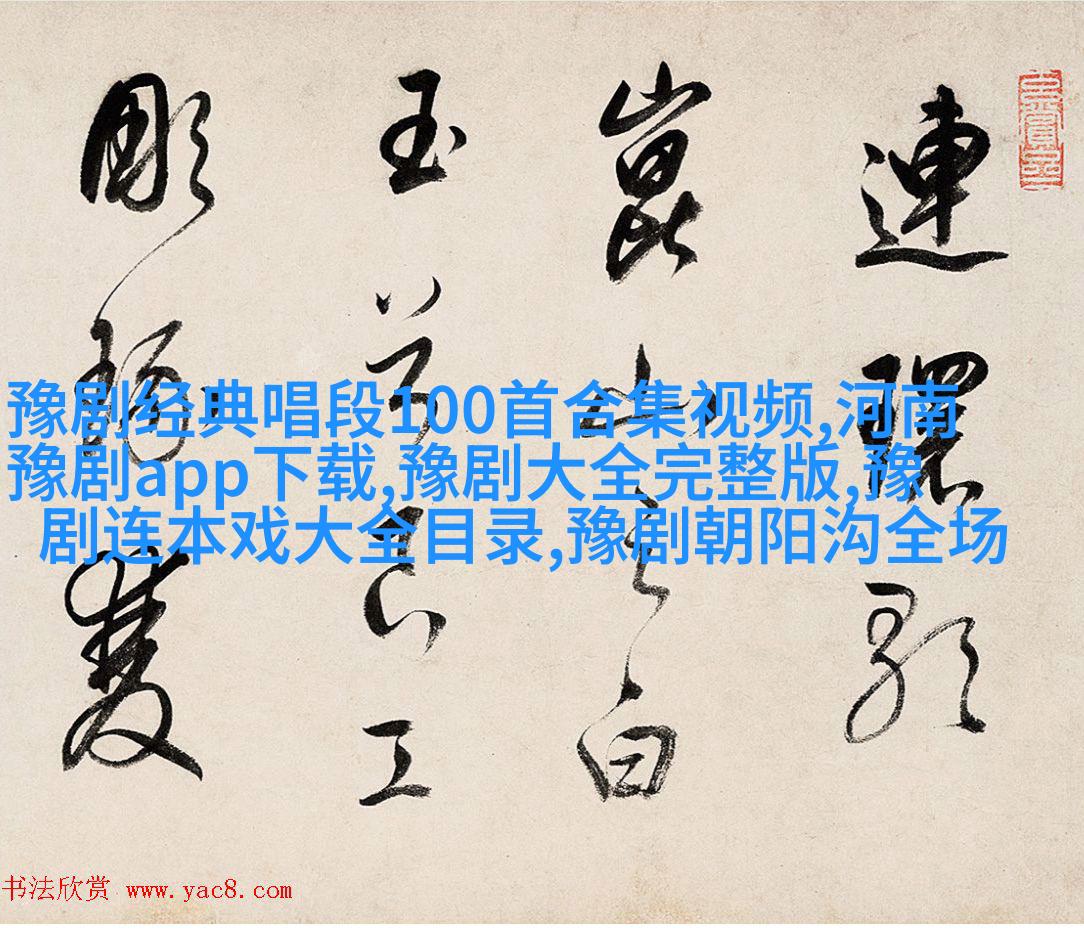 連環歌
崑山之白
玉兮良工
彫雙
豫剧经典唱段100首合集视频,河南
豫剧app下载,豫剧大全完整版,豫
剧连本戏大全目录,豫剧朝阳沟全场
书法欣赏 www.yac8.com